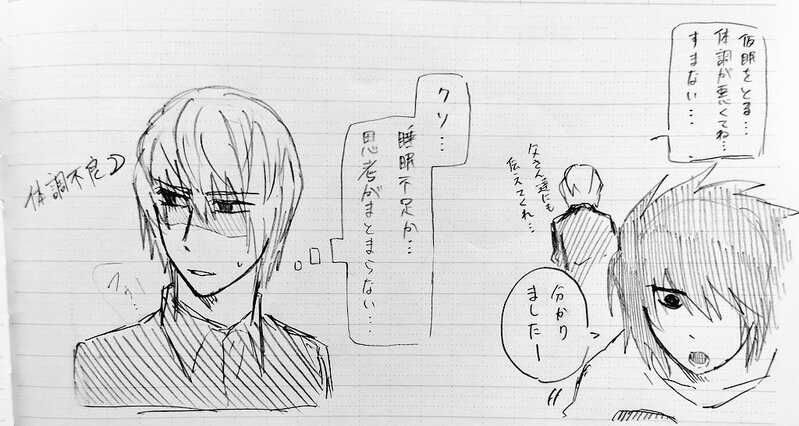 仮眠をとる…
体調が悪くてね…
すまない…
父さん達にも
伝えてくれ…
分かり
ましたー
クソ…
睡眠不足か…
思考がまとまらない…
体調不良